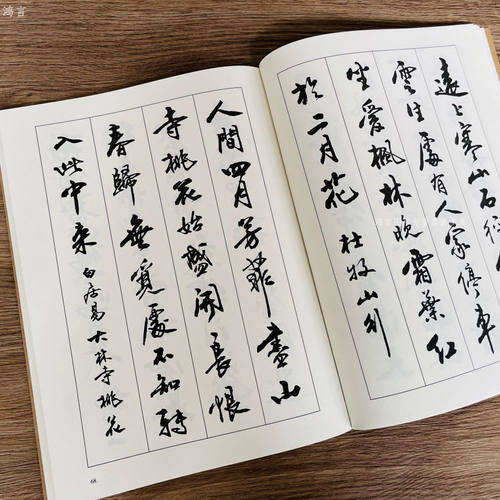 鸿言
遠上寒山石徑
雲生處有人家停車
坐愛楓林晚霜葉紅
於二月花 杜牧山行
人間四月芳菲盡山
寺桃花始盛開長恨
春歸無覓處不知轉
入此中來 白居易大林寺桃花
68